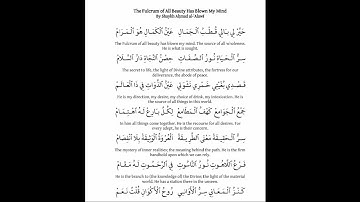 The Fulcrum of All Beauty Has Blown My Mind
By Shaykh Ahmad al-'Alawi
حَيَّرَ لِي بَالِي قُطْبُ الْجَمَالِ عَيْنُ الْكَمَالِ هُوَ الْمَرَامُ
The Fulcrum of all beauty has blown my mind. The source of all wholeness:
He is what is sought.
سِرُّ الْحَيَاةِ نُورُ الصِّفَاتِ حِصْنُ النَّجَاةِ دَارُ السَّلَامُ
The secret to life, the light of Divine attributes, the fortress for our
deliverance, the abode of peace.
قَصْدِي بُغْيَتِي خَمْرِي نَشْوَتِي عَيْنُ الذَّوَاتِ فِي ذَا الْعَالَمْ
He is my direction, my desire, my choice of drink, my intoxication. He is
the source of all things in this world.
جَمْعُ الْجَوَامِعْ كَهْفُ الْمَطَامِعْ لِكُلِّ بَارِعْ لَهُ اهْتِمَامْ
In him all things come together. He is the recourse for all desires. For
every adept, he is their concern.
سِرُّ الْحَقِيقَةْ مَعْنَى الطَّرِيقَةْ الْعُرْوَةُ الْوَثِيقَةْ بِلَا انْفِصَامْ
The mystery of inner realities; the meaning behind the path. He is the firm
handhold upon which we can rely.
فَرْعُ اللَّاهُوتِ نُورُ النَّاسُوتِ فِي الرَّحَمُوتِ لَهُ مَقَامْ
He is the branch to (the knowledge of) the Divine; the light of the material
world. He has a station there to the unseen.
كَنْزُ الْمَعَانِي سِرُّ الْأَوَانِي رُوحُ الْأَكْوَانِ قُلْتُ نَعَمْ